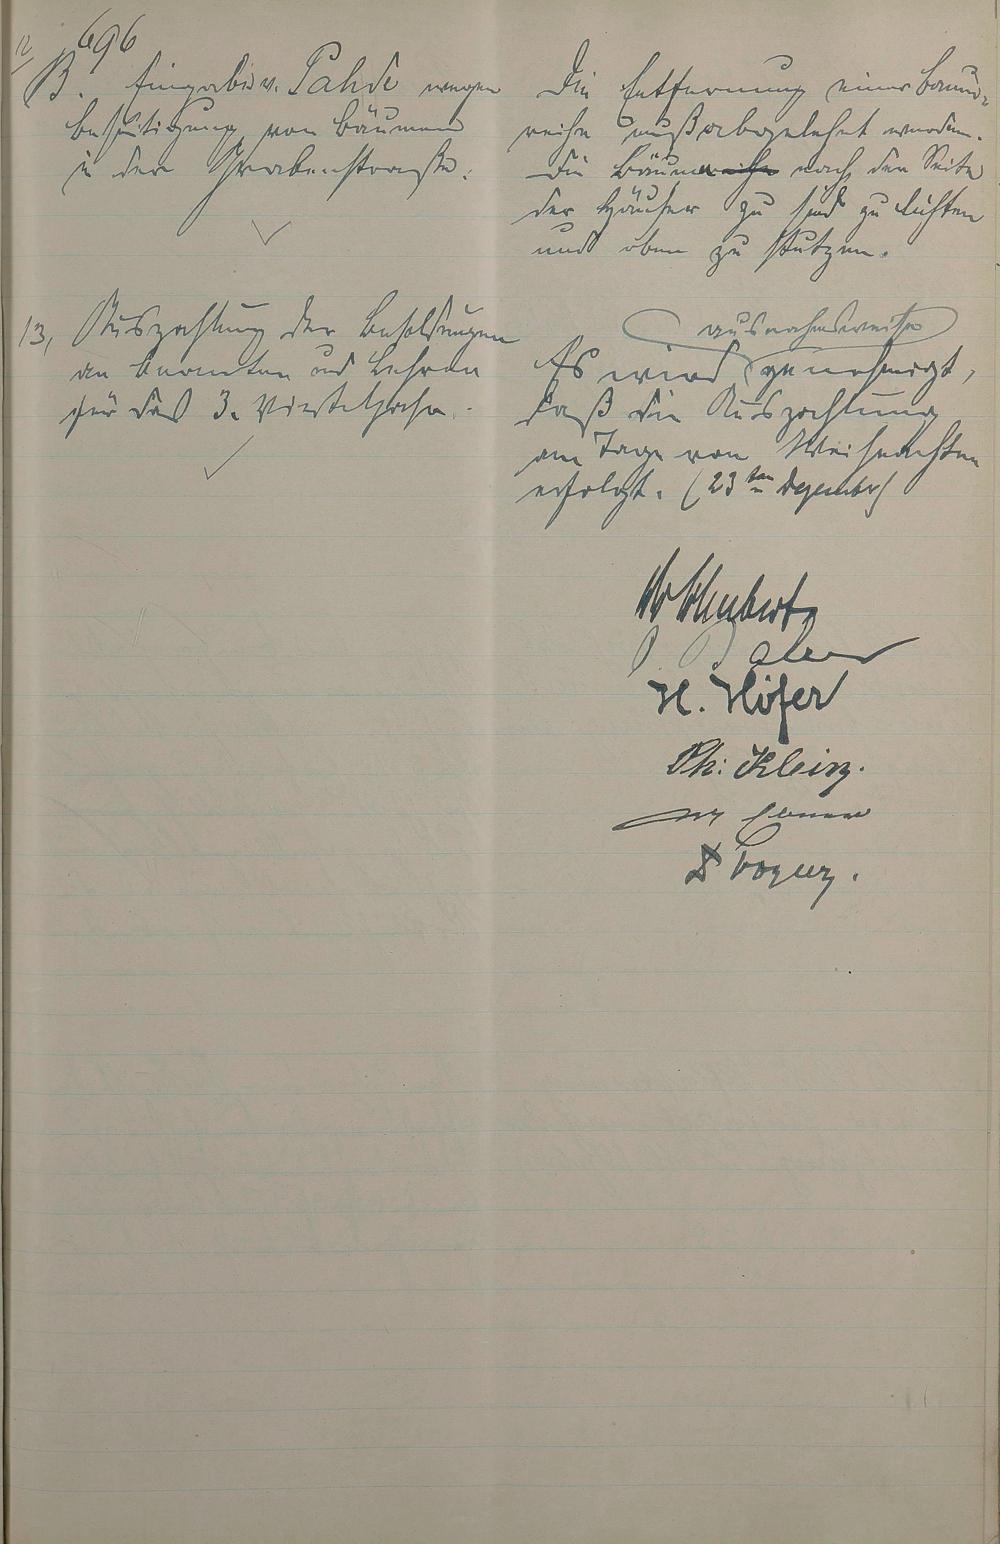 696
12
B. Eingabe v. Pahde wegen
Beseitigung von Bäumen
in der Grabenstraße.
Die Entfernung einer Baum-
reihe muß abgelehnt werden.
Die Bäume nach der Seite
der Häuser zu sind zu lichten
und oben zu stutzen.
13, Auszahlung der Besoldungen
an Beamten und Lehrer
für das 3. Vierteljahr.
ausnahmsweise
Es wird genehmigt,
daß die Auszahlung
am Tage von Weihnachten
erfolgt. (23ten Dezember)
Schubert
H. Höfer
Ph: Klein.